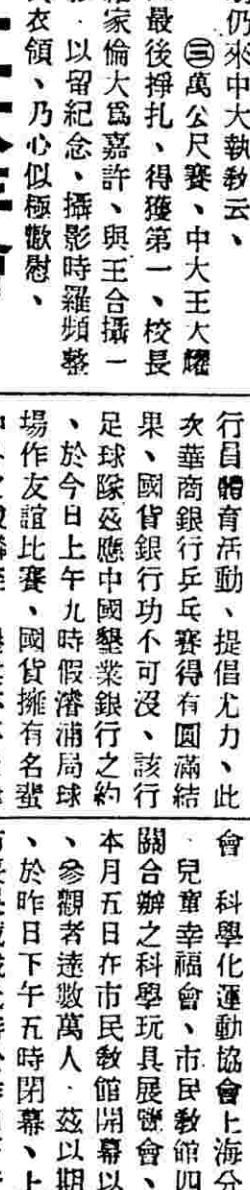 仍來中大執敎云、
㊂萬公尺賽、中大王大耀
最後掙扎、得獲第一、校長
家倫大爲嘉許、與王合攝一
以留紀念、攝影時羅頻整
衣領、乃心似極歡慰、
行員體育活動、提倡尤力、此
次華商銀行乒乓賽得有圓滿結
果、國貨銀行功不可沒、該行
足球隊茲應中國墾業銀行之約
、於今日上午九時假濬浦局球
場作友誼比賽、國貨擁有名蜚
會 科學化運動協會上海分
·兒童幸福會、市民敎館四
關合辦之科學玩具展覽會、
本月五日在市民敎館開幕以
、參觀者達數萬人·茲以期
、於昨日下午五時閉幕、上